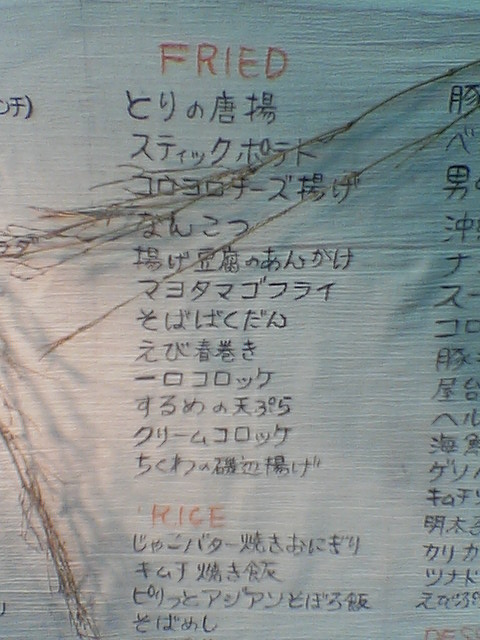 FRIED
とりの唐揚
スティックポテト
コロコロチーズ揚げ
なんこつ
揚げ豆腐のあんかけ
マヨタマゴフライ
そばばくだん
えび春巻き
一口コロッケ
するめの天ぷら
クリームコロッケ
ちくわの磯辺揚げ
RICE
じゃこバター焼きおにぎり
キムチ焼き飯
ピリっとアジアンそぼろ飯
そばめし
豚
ベ
男
沖
ナ
スー
コロ
豚
屋台
ヘル
海鮮
ゲソ
キムチ
明太
カリカ
ツナド
えび
DES